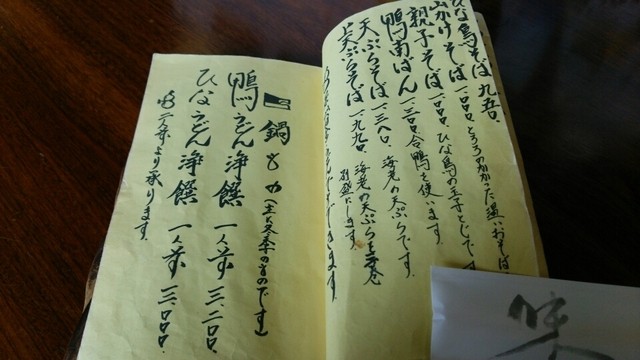 ひな鳥そば 九五〇、
山かけそば 一、〇〇〇 とろろのかかった温いおそば
親子そば 一、〇〇〇 ひな鳥の玉子とじです
鴨南ばん 一、三〇〇 合鴨を使います。
天ぷらそば 一、三八〇 海老の天ぷらです。
上天ぷらそば 一、九九〇 海老の天ぷら 別盛にします。
鍋もの（主に冬季のものです）
鴨うどん浄饌 一人前 三、二〇〇円
ひなうどん浄饌 一人前 三、〇〇〇円
二人前より承ります。
味